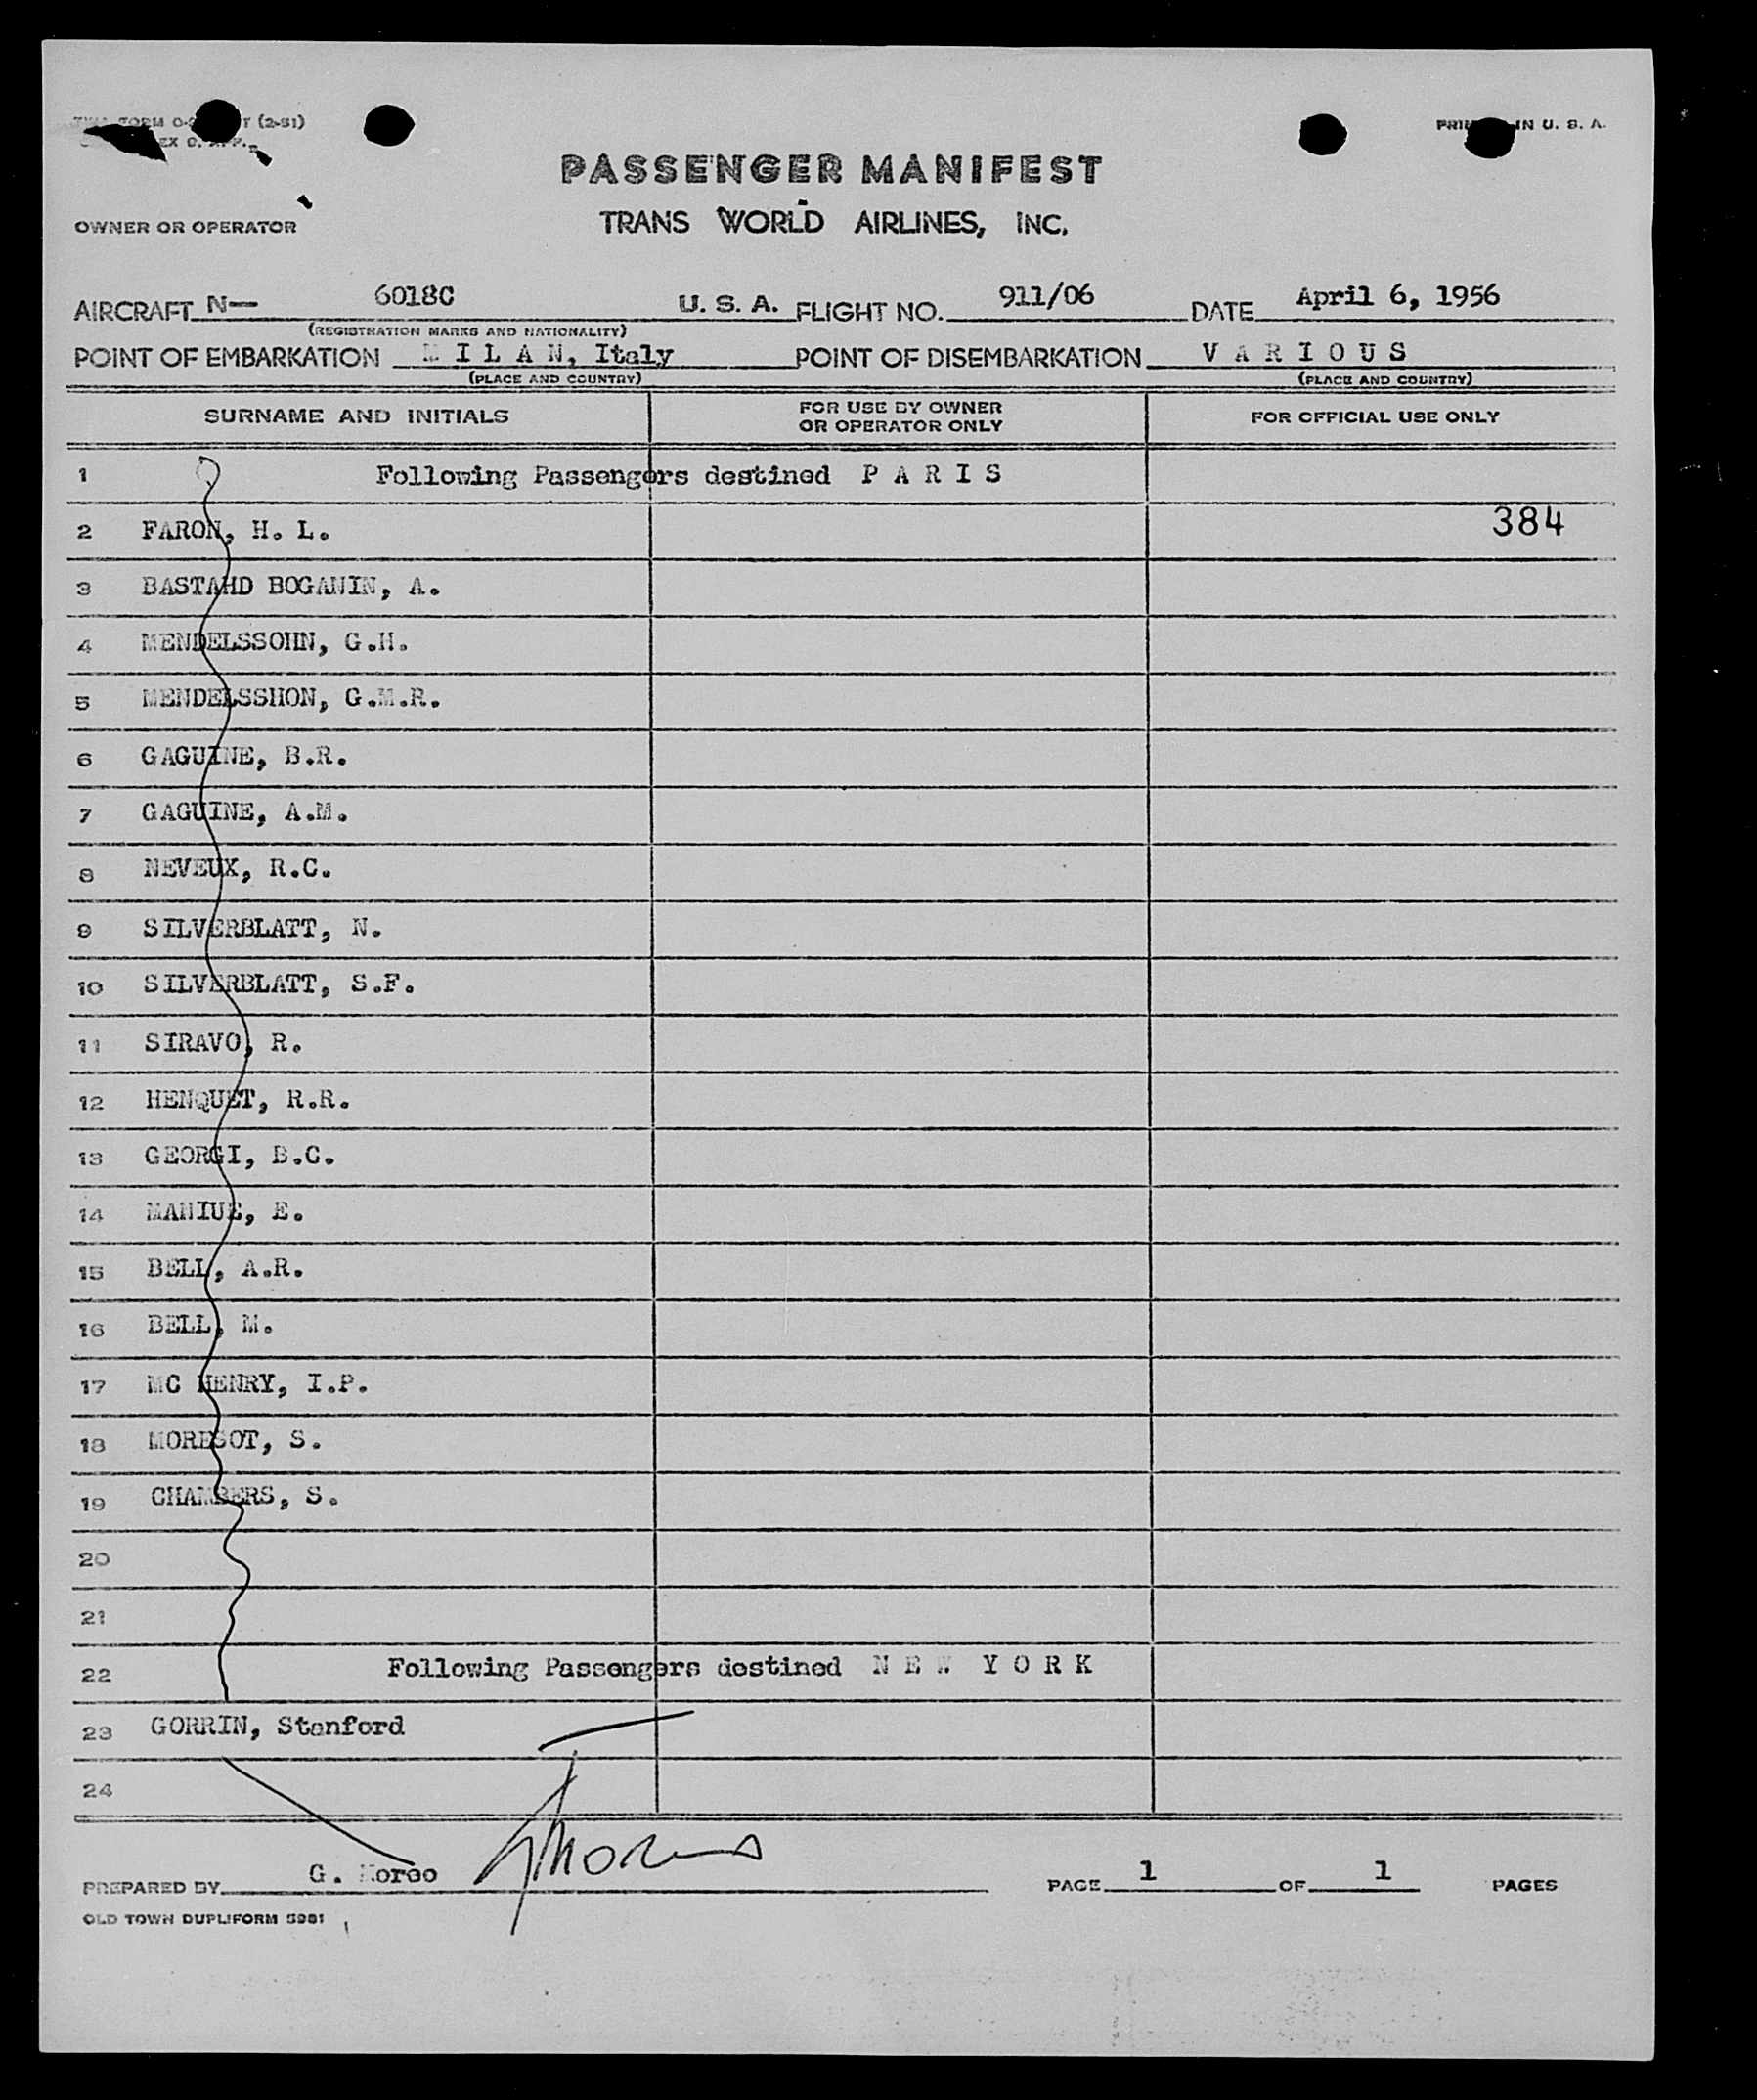 (2-51)
PRINTED IN U. S. A.
PASSENGER MANIFEST
TRANS WORLD AIRLINES, INC.
OWNER OR OPERATOR
AIRCRAFT N— 6018C U. S. A. FLIGHT NO. 911/06 DATE April 6, 1956
(REGISTRATION MARKS AND NATIONALITY)
POINT OF EMBARKATION M I L A N, Italy POINT OF DISEMBARKATION V A R I O U S
(PLACE AND COUNTRY) (PLACE AND COUNTRY)
SURNAME AND INITIALS FOR USE BY OWNER OR OPERATOR ONLY FOR OFFICIAL USE ONLY
1 Following Passengers destined P A R I S
2 FARON, H. L. 384
3 BASTAHD BOGANIN, A.
4 MENDELSSOHN, G.H.
5 MENDELSSHON, G.M.R.
6 GAGUINE, B.R.
7 GAGUINE, A.M.
8 NEVEUX, R.C.
9 SILVERBLATT, N.
10 SILVERBLATT, S.F.
11 SIRAVO, R.
12 HENQUET, R.R.
13 GEORGI, B.C.
14 MANIUE, E.
15 BELL, A.R.
16 BELL, M.
17 MC HENRY, I.P.
18 MORESOT, S.
19 CHAMBERS, S.
20
21
22 Following Passengers destined N E W Y O R K
23 GORRIN, Stanford
24
PREPARED BY G. PAGE 1 OF 1 PAGES
OLD TOWN DUPLIFORM 5981